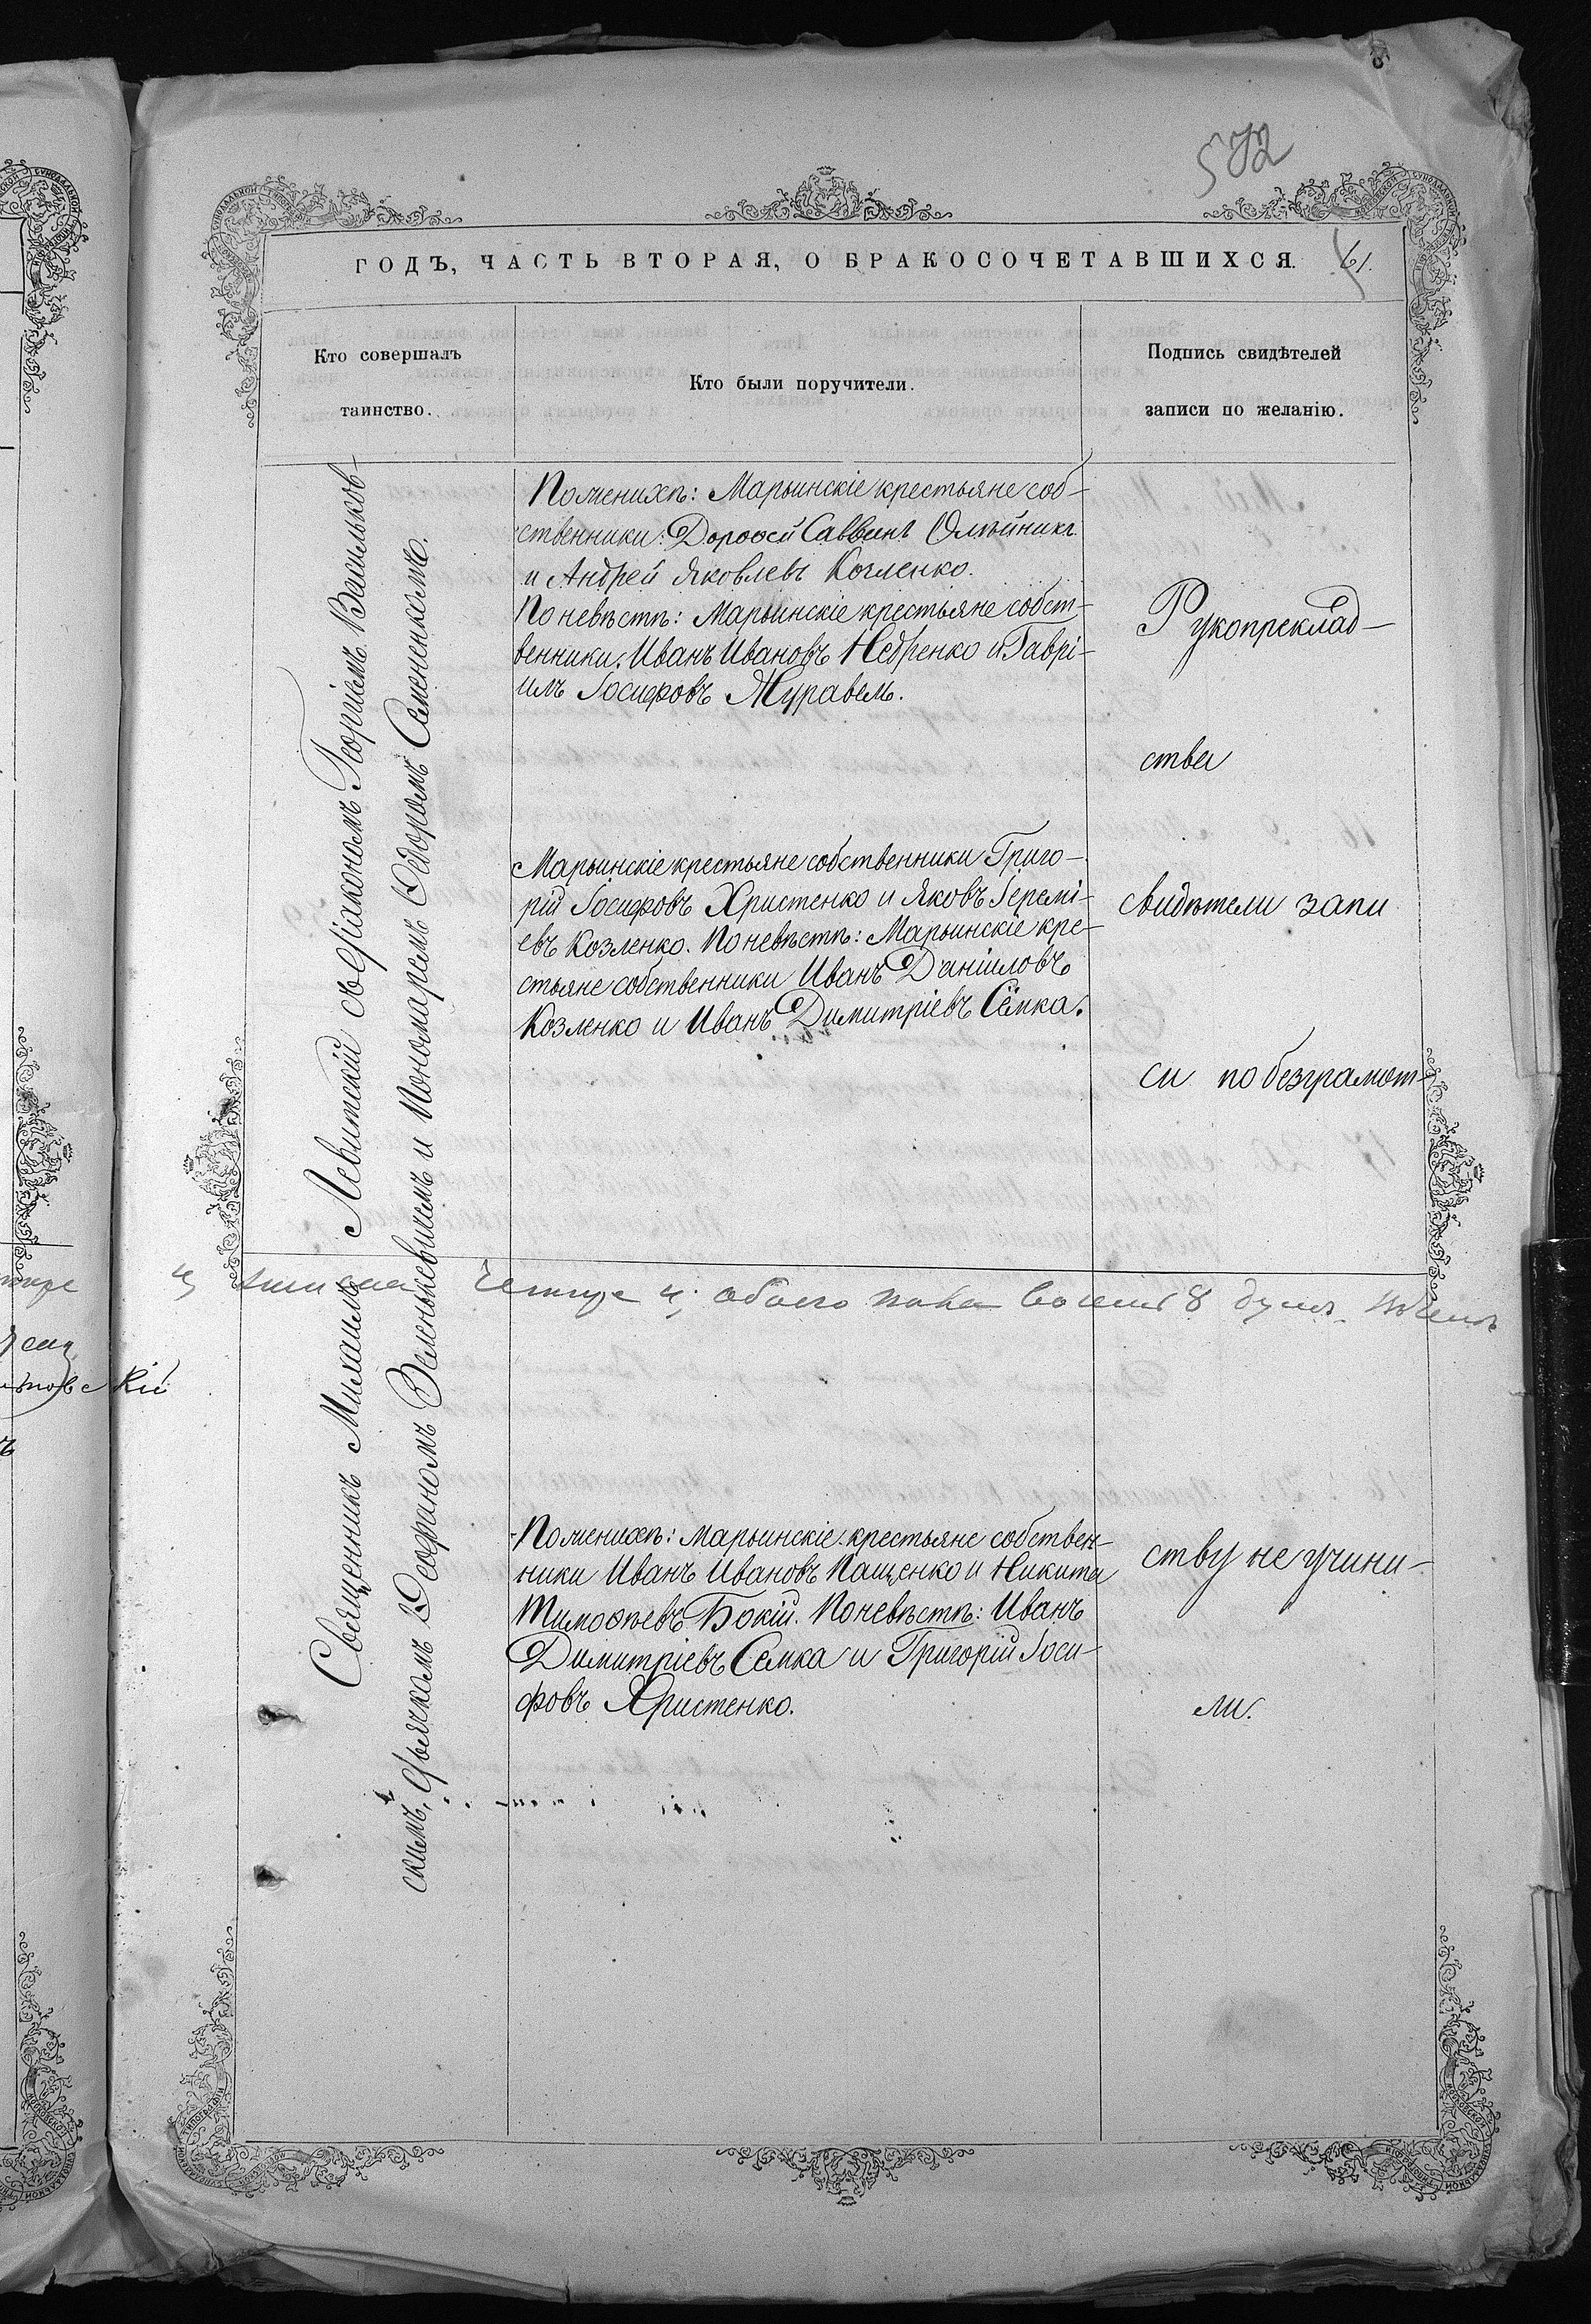 572
ГОДЪ, ЧАСТЬ ВТОРАЯ, О БРАКОСОЧЕТАВШИХСЯ. 61.
Кто совершалъ
таинство.
Кто были поручители.
Подпись свидѣтелей
записи по желанію.
Священникъ Михаилъ Левитскій съ діакономъ Георгіемъ Васильков-
скимъ, дьячкомъ Ѳеофаномъ Зеленькевичемъ и Пономаремъ Ѳедоромъ Семененкомъ.
По женихѣ: Марьинскіе крестьяне соб-
ственники: Дороѳей Саввинъ Олѣйникъ
и Андрей Яковлевъ Козленко.
По невѣстѣ: Марьинскіе крестьяне собст-
венники: Иванъ Ивановъ Недренко и Гаврі-
илъ Іосифовъ Журавель.
Марьинскіе крестьяне собственники Григо-
рій Іосифовъ Христенко и Яковъ Іеремі-
евъ Козленко. По невѣстѣ: Марьинскіе кре-
стьяне собственники Иванъ Даніиловъ
Козленко и Иванъ Димитріевъ Сёмка.
четыре 4, обоего пола восемь 8 душъ.
По женихѣ: Марьинскіе крестьяне собствен-
ники Иванъ Ивановъ Пащенко и Никита
Тимоѳѣевъ Бокій. По невѣстѣ: Иванъ
Димитріевъ Семка и Григорій Іоси-
фовъ Христенко.
Рукопреклад-
ства
свидѣтели запи
си по безграмот-
ству не учини-
ли.